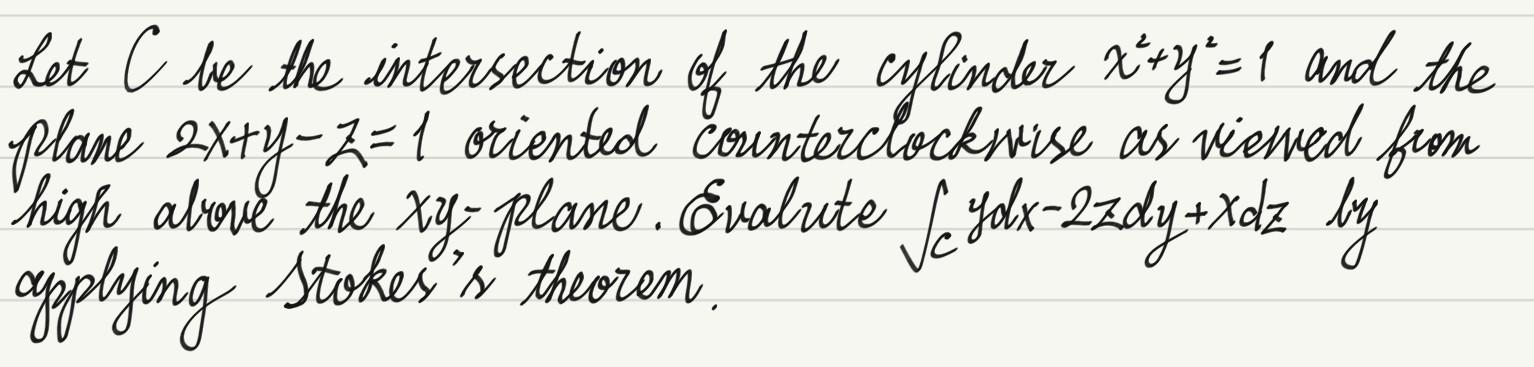 Let C be the intersection of the cylinder x²+y²=1 and the
plane 2x+y-z=1 oriented counterclockwise as viewed from
high above the xy-plane. Evalute ∫_C ydx-2zdy+xdz by
applying Stokes's theorem.